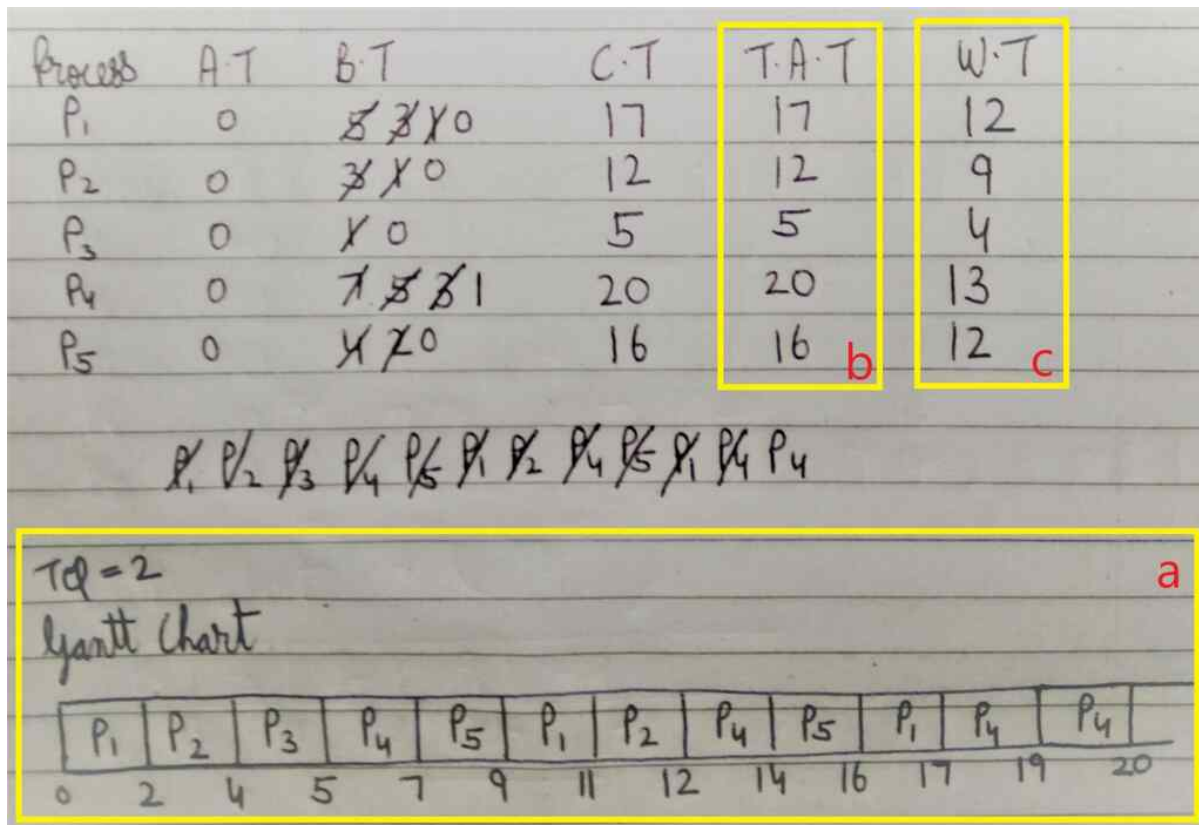 Process A.T B.T C.T T.A.T W.T
P1 0 5 3 1 0 17 17 12
P2 0 3 1 0 12 12 9
P3 0 1 0 5 5 4
P4 0 7 5 3 1 20 20 13
P5 0 4 2 0 16 16 12
b c
P1 P2 P3 P4 P5 P1 P2 P4 P5 P1 P4 P4
TQ = 2 a
Gantt Chart
P1 P2 P3 P4 P5 P1 P2 P4 P5 P1 P4 P4
0 2 4 5 7 9 11 12 14 16 17 19 20